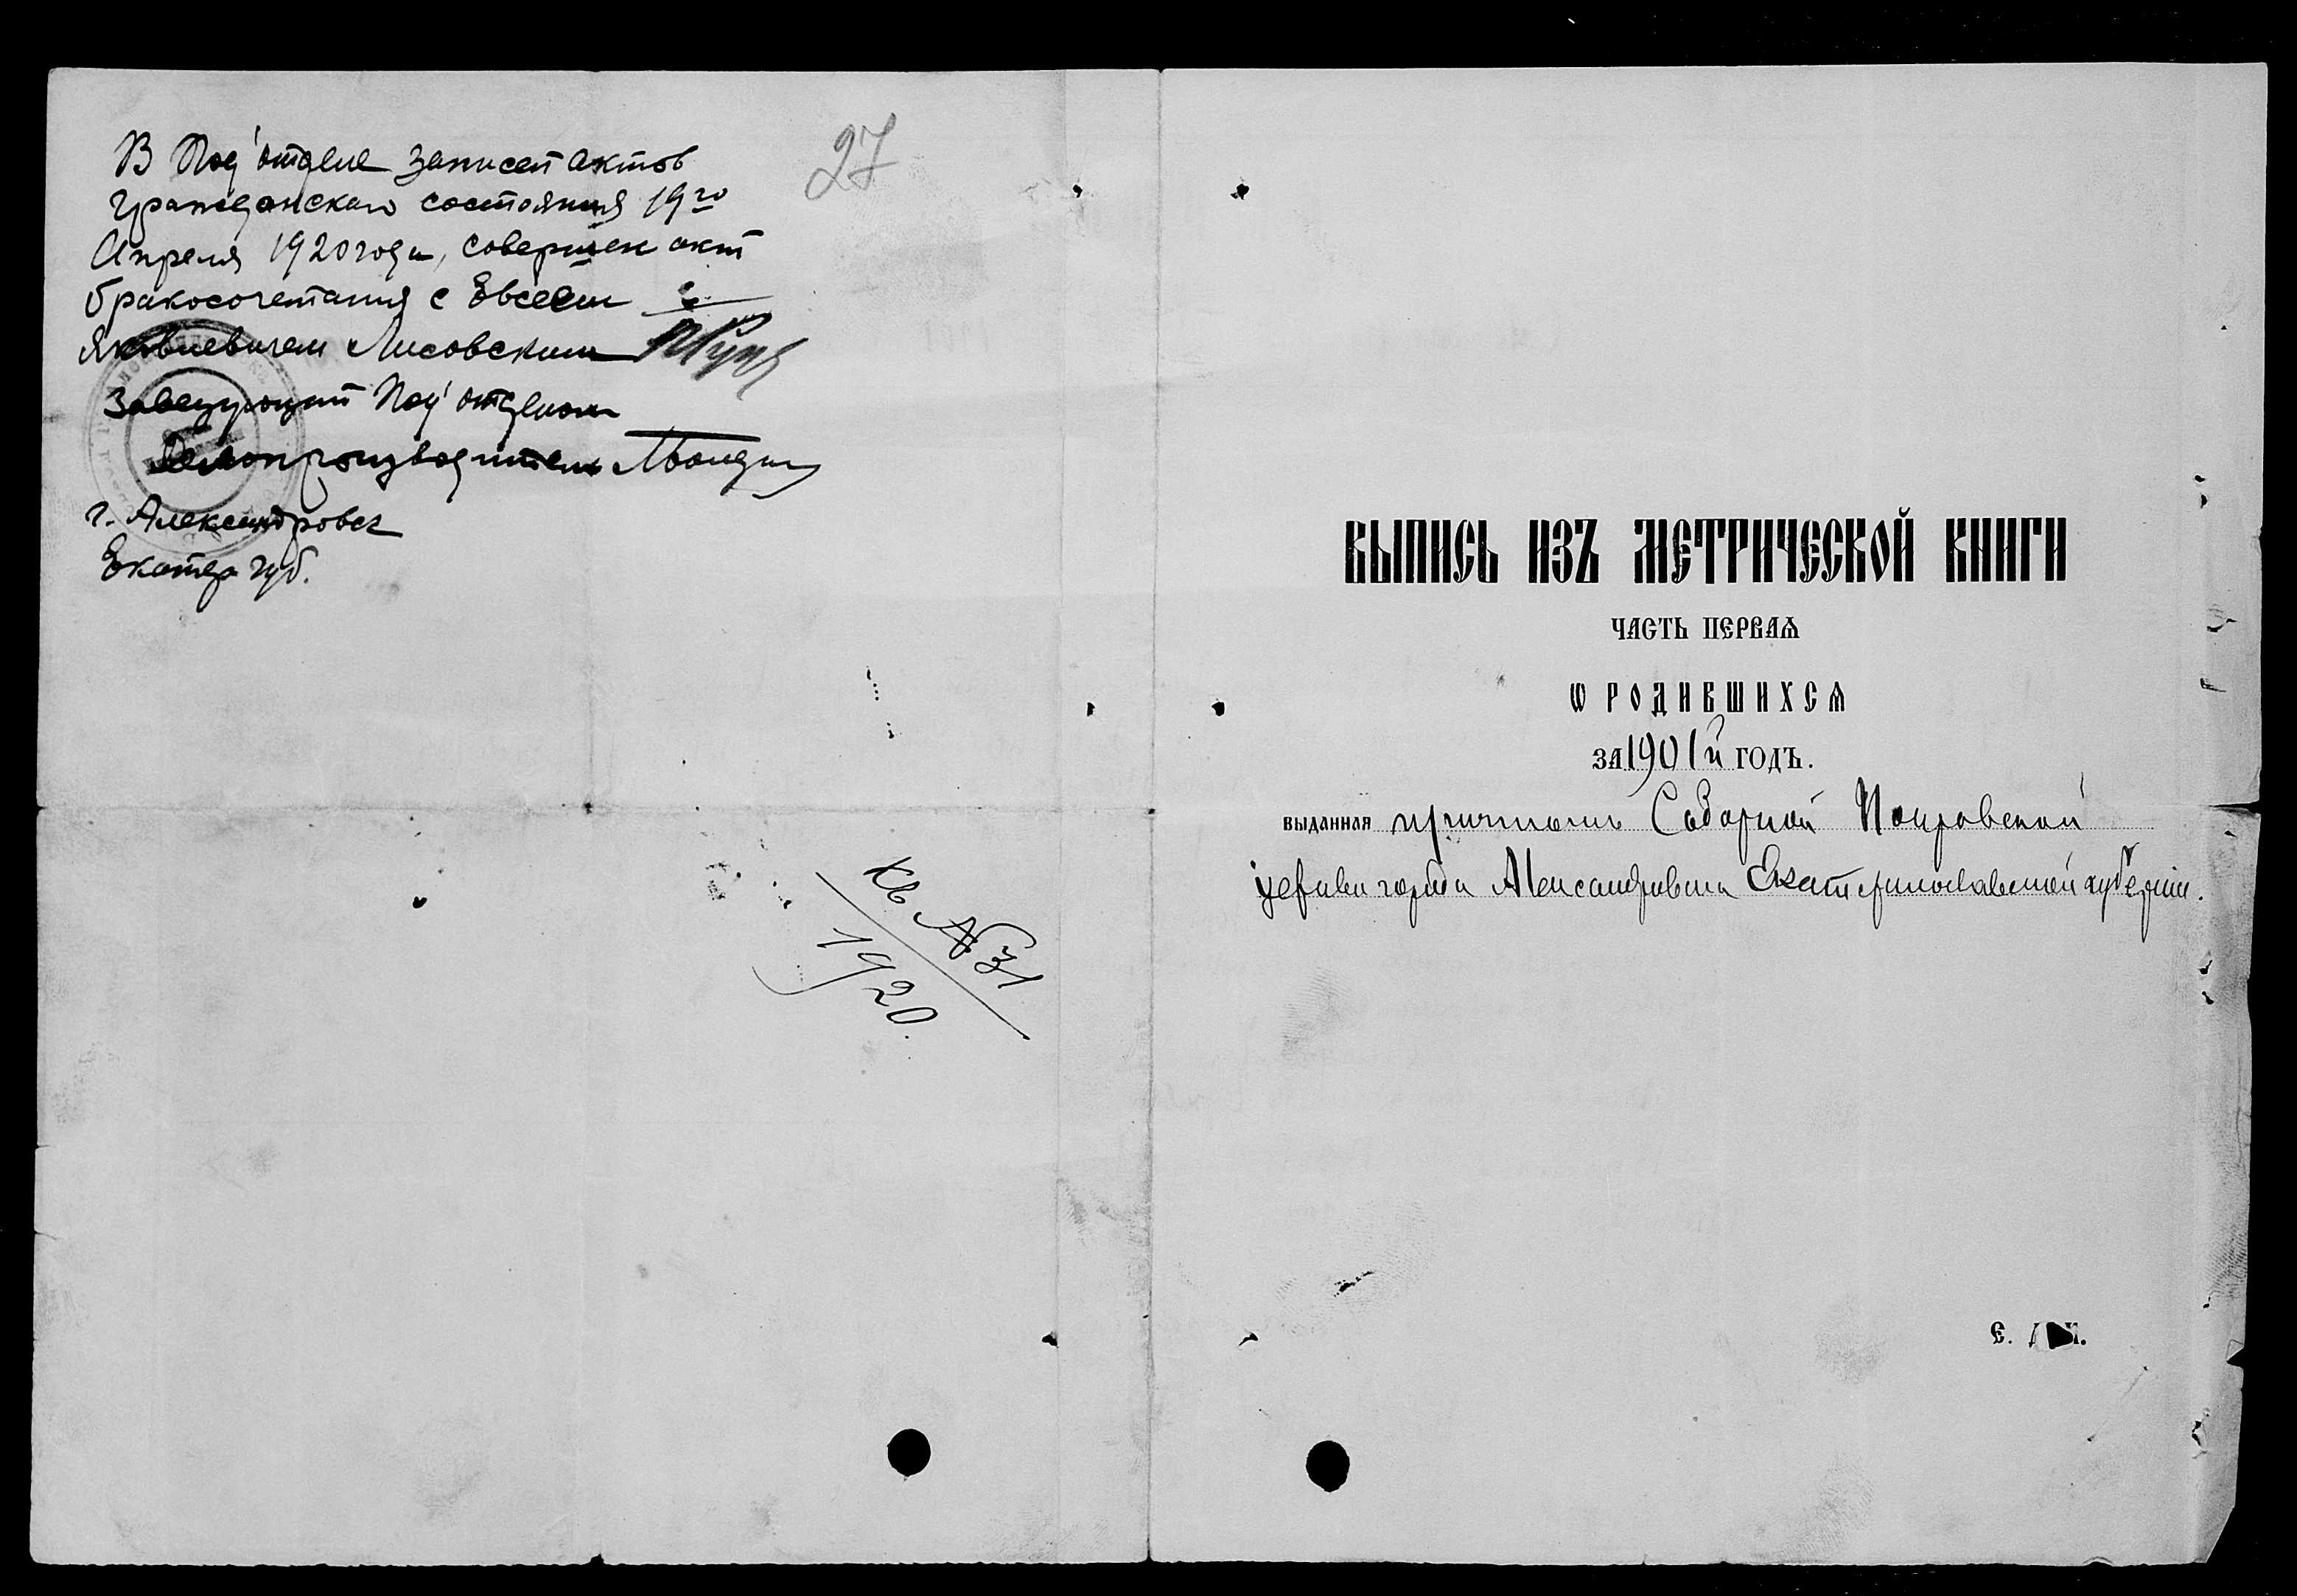 27
В Под'отделе Записей актов
Гражданскаго состояния 19го
Апреля 1920 года, совершен акт
бракосочетания с Евсеем
Яковлевичем Лисовским
Заведующий Под'отделом
Делопроизводитель
г. Александровск
Екатер губ.
Кв № 31
1920.
ВЫПИСЬ ИЗЪ МЕТРИЧЕСКОЙ КНИГИ
ЧАСТЬ ПЕРВАѦ
Ѡ РОДИВШИХСѦ
ЗА 1901й ГОДЪ.
выданная причтомъ Соборной Покровской
церкви города Александровска Екатеринославской губерніи.